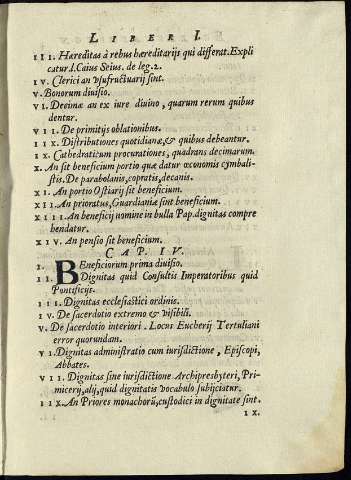 LIBER I.
III. Hæreditas à rebus hæreditarijs qui differat. Expli
catur.l.Caius Seius. de leg.2.
IV. Clerici an vsufructuarij sint.
V. Bonorum diuisio.
VI. Decimæ an ex iure diuino, quarum rerum quibus
dentur.
VII. De primitijs oblationibus.
IIX. Distributiones quotidianæ,& quibus debeantur.
IX. Cathedraticum procurationes, quadrans decimarum.
X. An sit beneficium portio quæ datur œconomis cymbali-
stis. De parabolanis, copiatis, decanis.
XI. An portio Ostiarij sit beneficium.
XII. An prioratus, Guardianiæ sint beneficium.
XIII. An beneficij nomine in bulla Pap. dignitas compre
hendatur.
XIV. An pensio sit beneficium.
CAP. IV.
I. Beneficiorum prima diuisio.
II. Dignitas quid Consultis Imperatoribus quid
Pontificijs.
III. Dignitas ecclesiastici ordinis.
IV. De sacerdotio extremo & visibili.
V. De sacerdotio interiori. Locus Eucherij Tertuliani
error quorundam.
VI. Dignitas administratio cum iurisdictione, Episcopi,
Abbates.
VII. Dignitas sine iurisdictione Archipresbyteri, Pri-
micerij, alij, quid dignitatis vocabulo subijciatur.
IIX. An Priores monachorũ, custodici in dignitate sint.
IX.